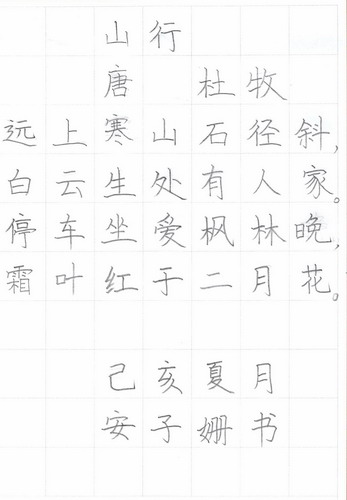 山行
唐 杜牧
远上寒山石径斜,
白云生处有人家。
停车坐爱枫林晚,
霜叶红于二月花。
己亥夏月
安子姗书